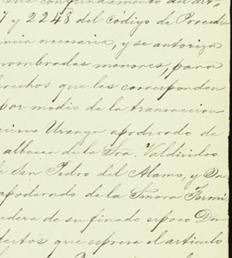 7 y 2248 del Código de Procedi
necesaria, y se autoriza
nombradas menores, para
rechos que les correspondan
por medio de la transaccion
Uranga apoderado de
albacea de la Sra. Valdivielso
de San Pedro del Alamo, y Dn
apoderado de la Señora Fermi
edera de su finado esposo Don
que espresa el artículo